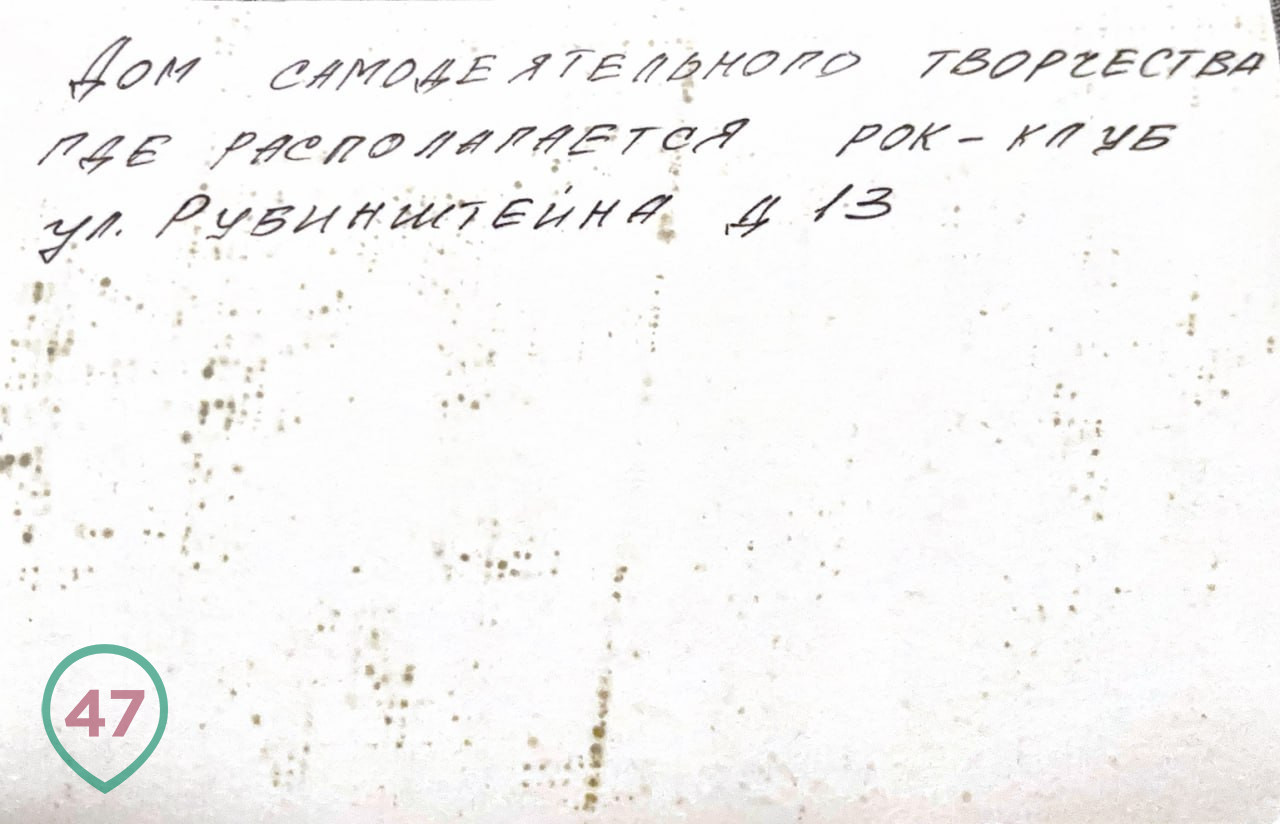 Дом самодеятельного творчества
где располагается рок-клуб
ул. Рубинштейна д 13
47